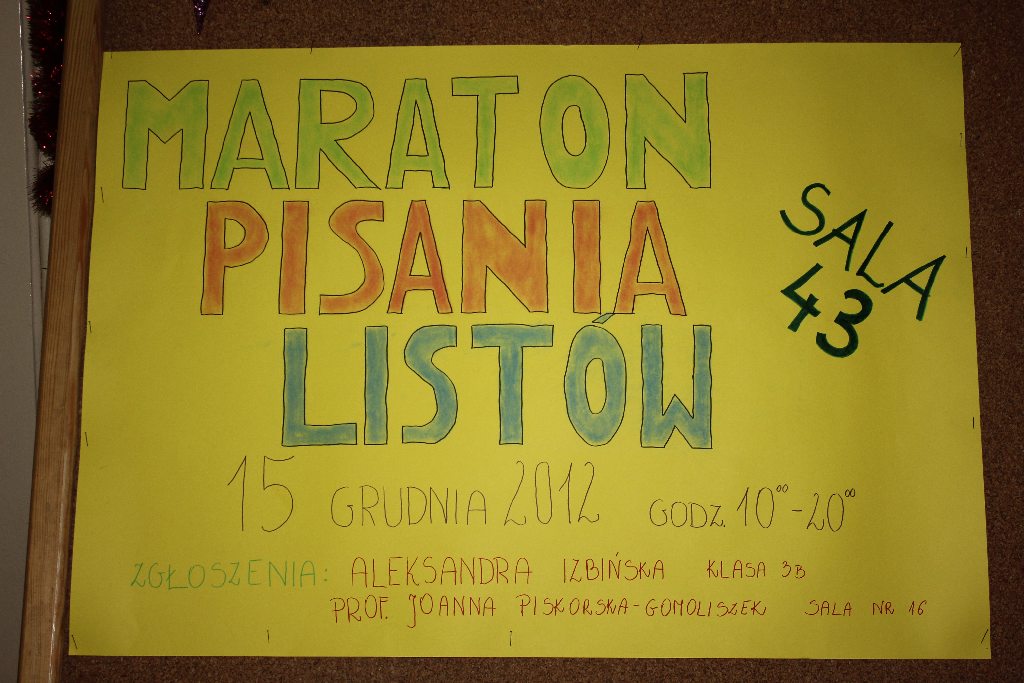 MARATON
PISANIA
LISTÓW
SALA
43
15 GRUDNIA 2012 GODZ. 10⁰⁰-20⁰⁰
ZGŁOSZENIA: ALEKSANDRA IZBIŃSKA KLASA 3B
PROF. JOANNA PISKORSKA-GOMOLISZEK SALA NR 16